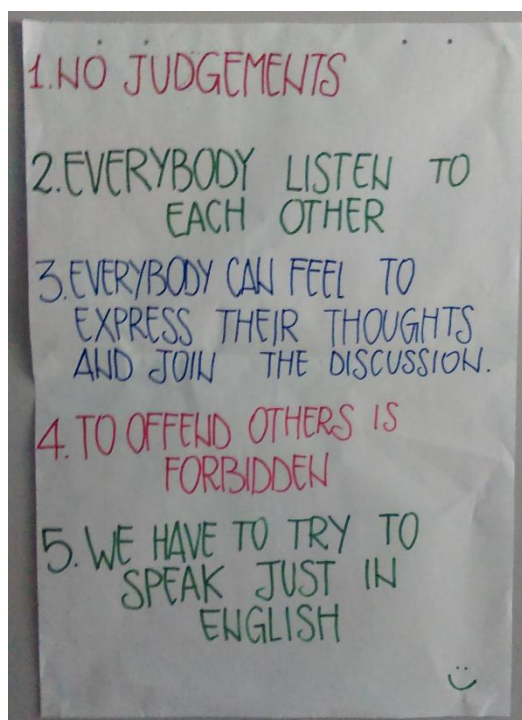 1. NO JUDGEMENTS
2. EVERYBODY LISTEN TO
EACH OTHER
3. EVERYBODY CAN FEEL TO
EXPRESS THEIR THOUGHTS
AND JOIN THE DISCUSSION.
4. TO OFFEND OTHERS IS
FORBIDDEN
5. WE HAVE TO TRY TO
SPEAK JUST IN
ENGLISH